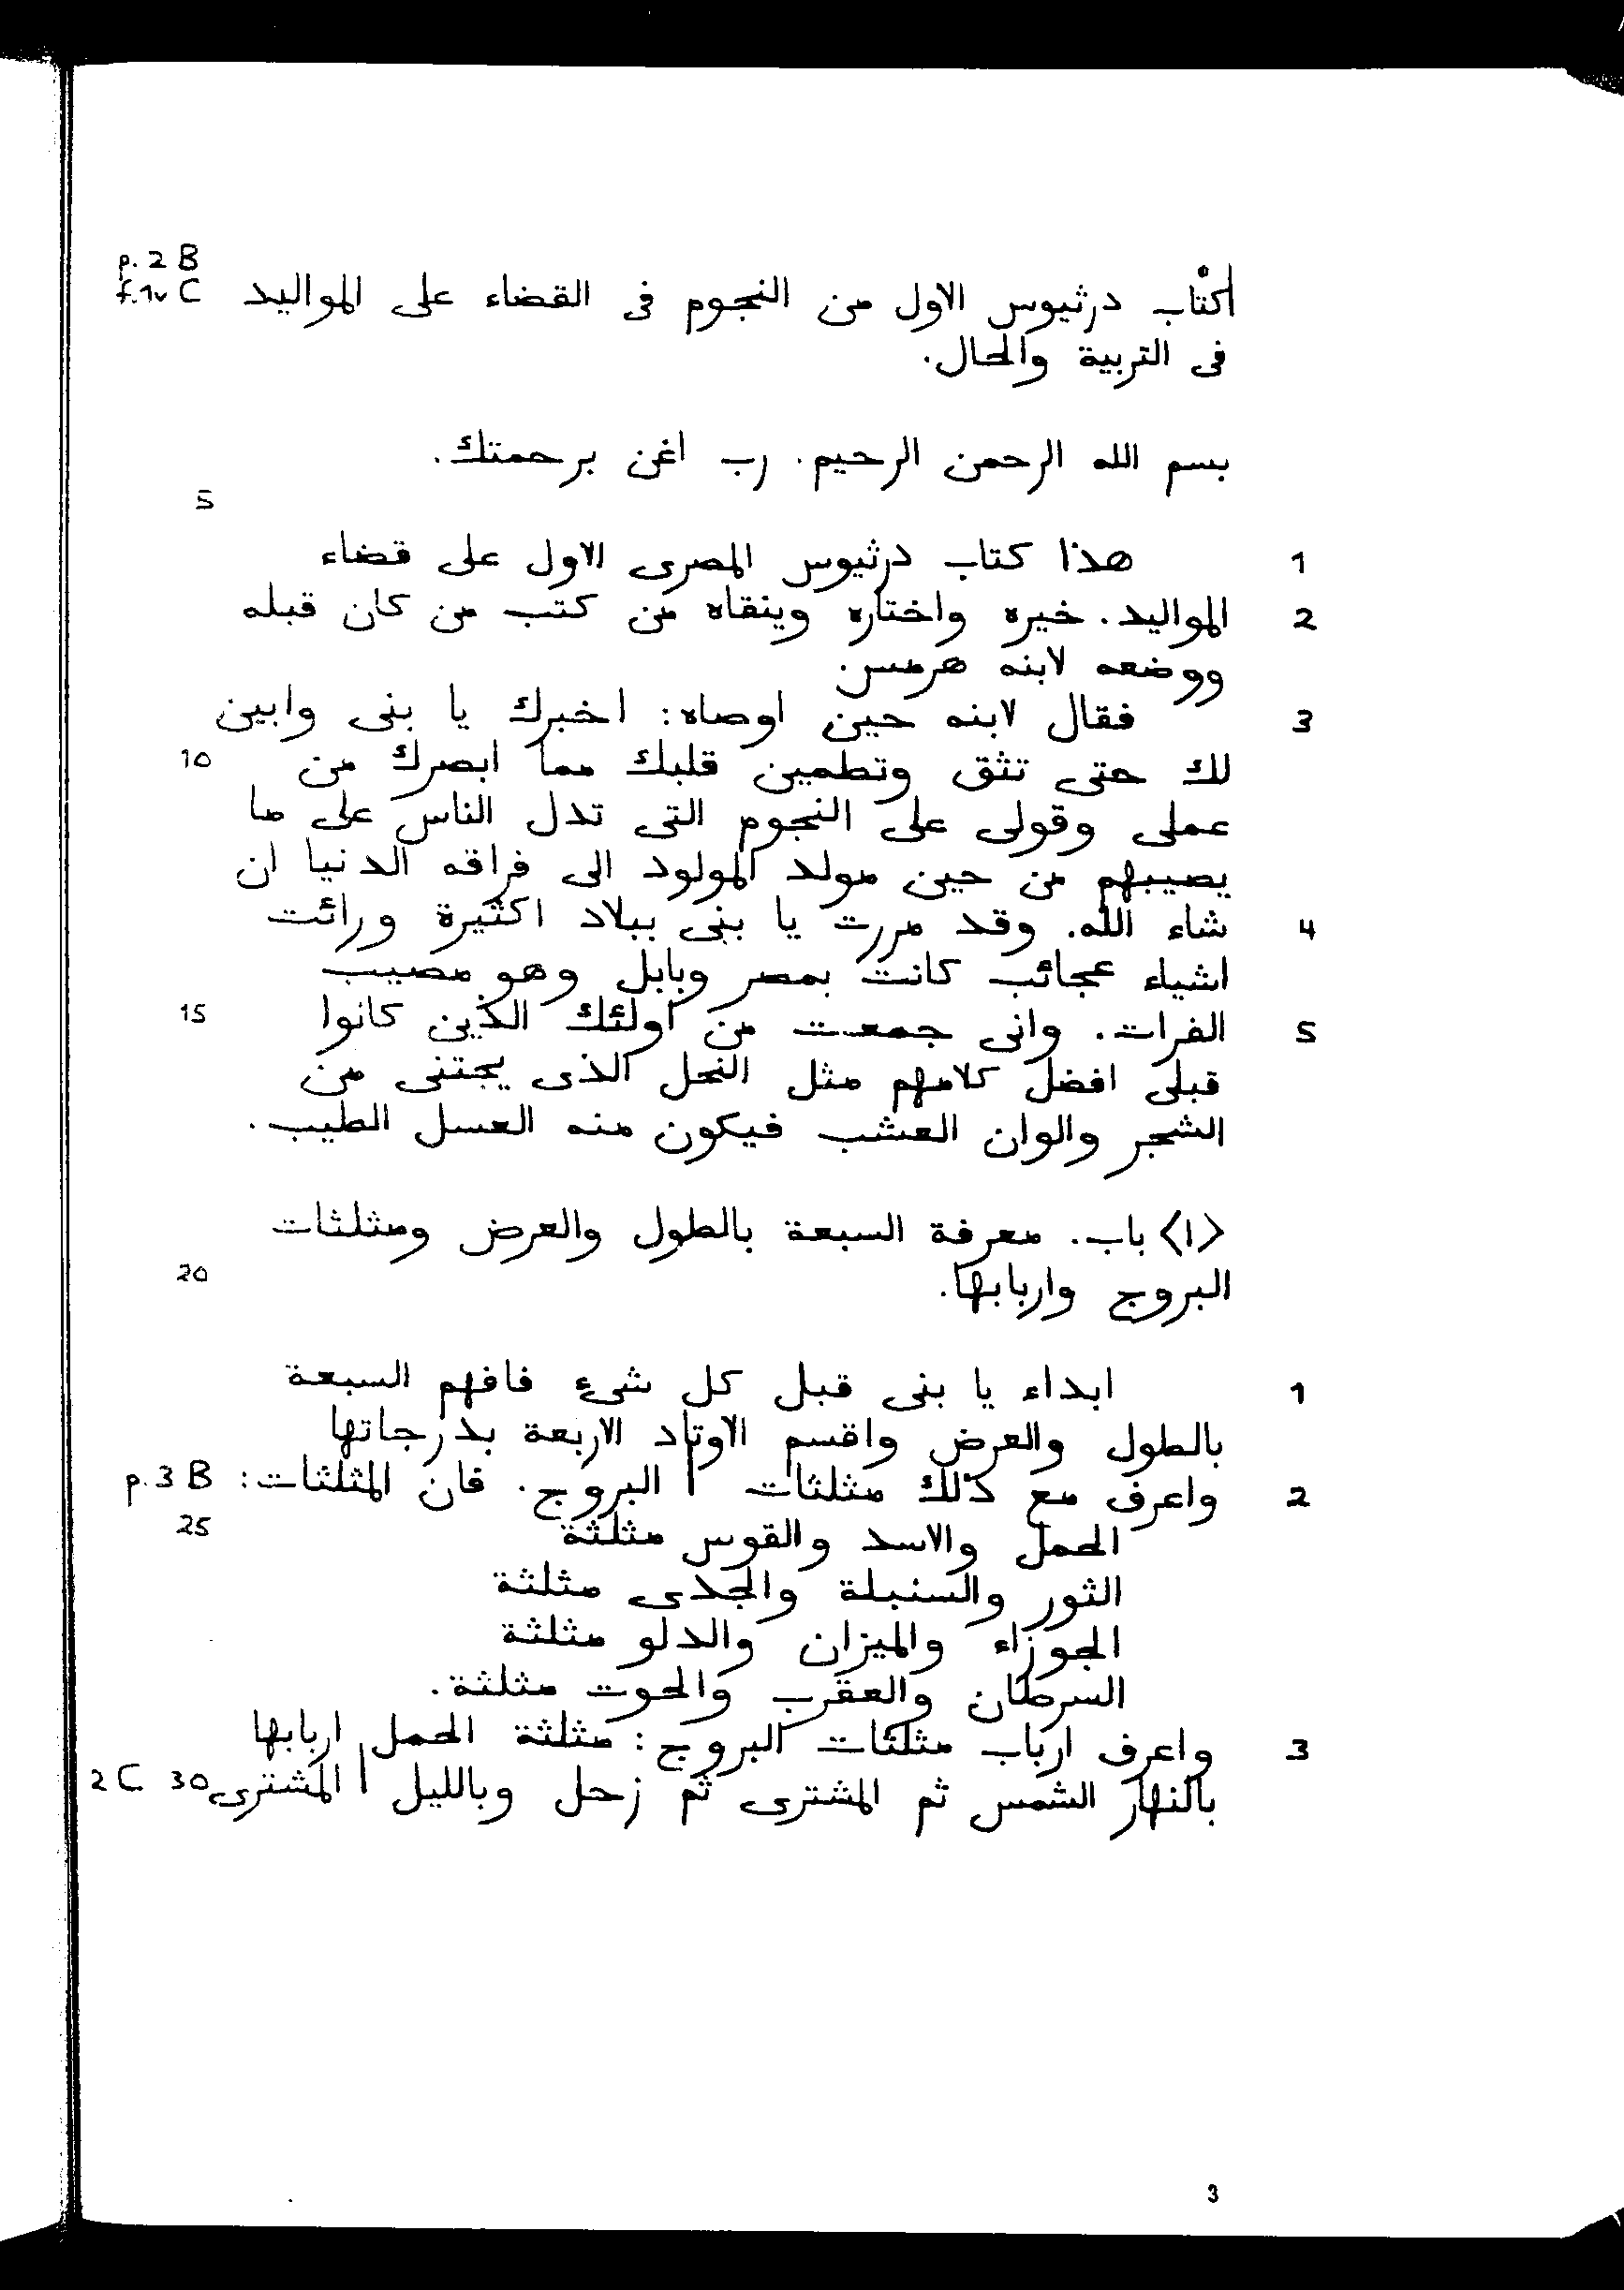 p. 2 B
f. 1v C
كتاب درثيوس الاول من النجوم فى القضاء على المواليد
فى التربية والحال.
بسم الله الرحمن الرحيم. رب اغن برحمتك.
5
1 هذا كتاب درثيوس المصرى الاول على قضاء
2 المواليد. خيره واختاره وينقاه من كتب من كان قبله
ووضعه لابنه هرمس.
3 فقال لابنه حين اوصاه: اخبرك يا بنى وابين
لك حتى تثق وتطمين قلبك مما ابصرك من 10
عملى وقولى على النجوم التى تدل الناس على ما
يصيبهم من حين مولد المولود الى فراقه الدنيا ان
4 شاء الله. وقد مررت يا بنى ببلاد اكثيرة ورائت
اشياء عجائب كانت بمصر وبابل وهو مصيب
5 الفرات. وانى جمعت من اولئك الذين كانوا 15
قبلى افضل كلامهم مثل النحل الذى يجتنى من
الشجر والوان العشب فيكون منه العسل الطيب.
<ا> باب. معرفة السبعة بالطول والعرض ومثلثات
البروج واربابها. 20
1 ابداء يا بنى قبل كل شىء فافهم السبعة
بالطول والعرض واقسم الاوتاد الاربعة بدرجاتها
2 واعرف مع ذلك مثلثات | البروج. فان المثلثات: p. 3 B
الحمل والاسد والقوس مثلثة 25
الثور والسنبلة والجدى مثلثة
الجوزاء والميزان والدلو مثلثة
السرطان والعقرب والحوت مثلثة.
3 واعرف ارباب مثلثات البروج: مثلثة الحمل اربابها
بالنهار الشمس ثم المشترى ثم زحل وبالليل | المشترى 30 2 C
3